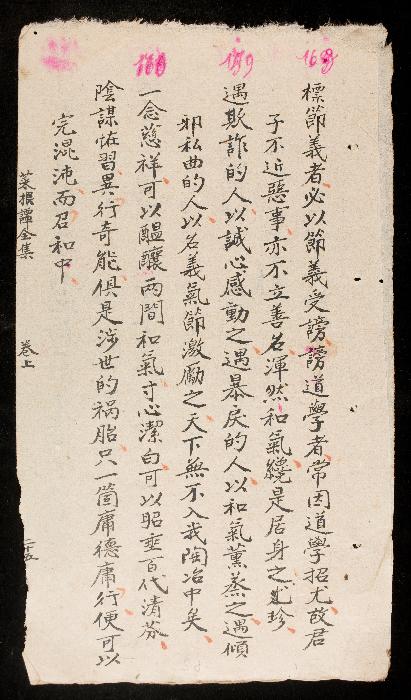 168
標節義者必以節義受謗謗道學者常因道學招尤故君
子不近惡事亦不立善名渾然和氣纔是居身之珍
遇欺詐的人以誠心感動之遇暴戾的人以和氣薰蒸之遇傾
邪私曲的人以名義氣節激勵之天下無不入我陶冶中矣
一念慈祥可以醞釀兩間和氣寸心潔白可以昭垂百代清芬
陰謀恠習異行奇能俱是涉世的禍胎只一箇庸德庸行便可以
完混沌而召和中
菜根譚全集 卷上 二十五